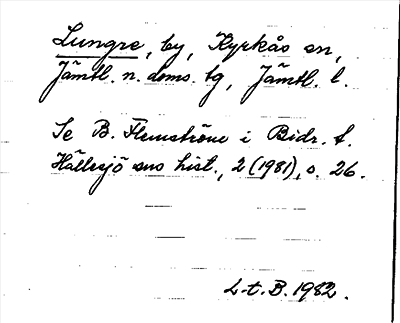 Lungre, by, Kyrkås sn,
Jämtl. n. doms. tg, Jämtl. l.
Se B. Flemström i Bidr. t.
Hällesjö sns hist., 2 (1981), s. 26.
L-t. B. 1982.